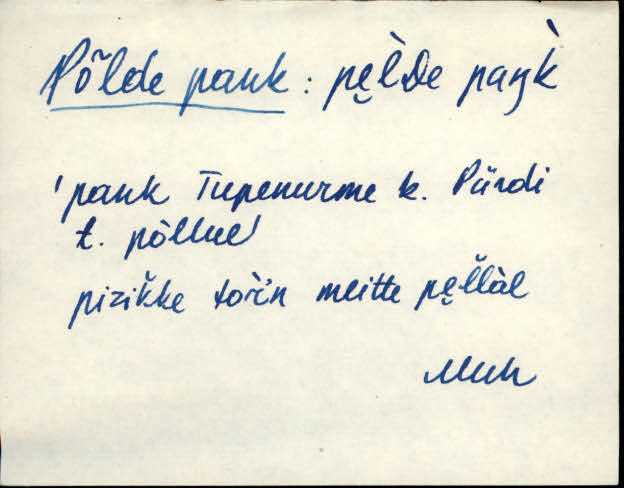 Põlde pank : pęl̀De paŋk̀
'pank Tupenurme k. Pürdi
t. põllul'
pizikke meitte pęllàl
Muh